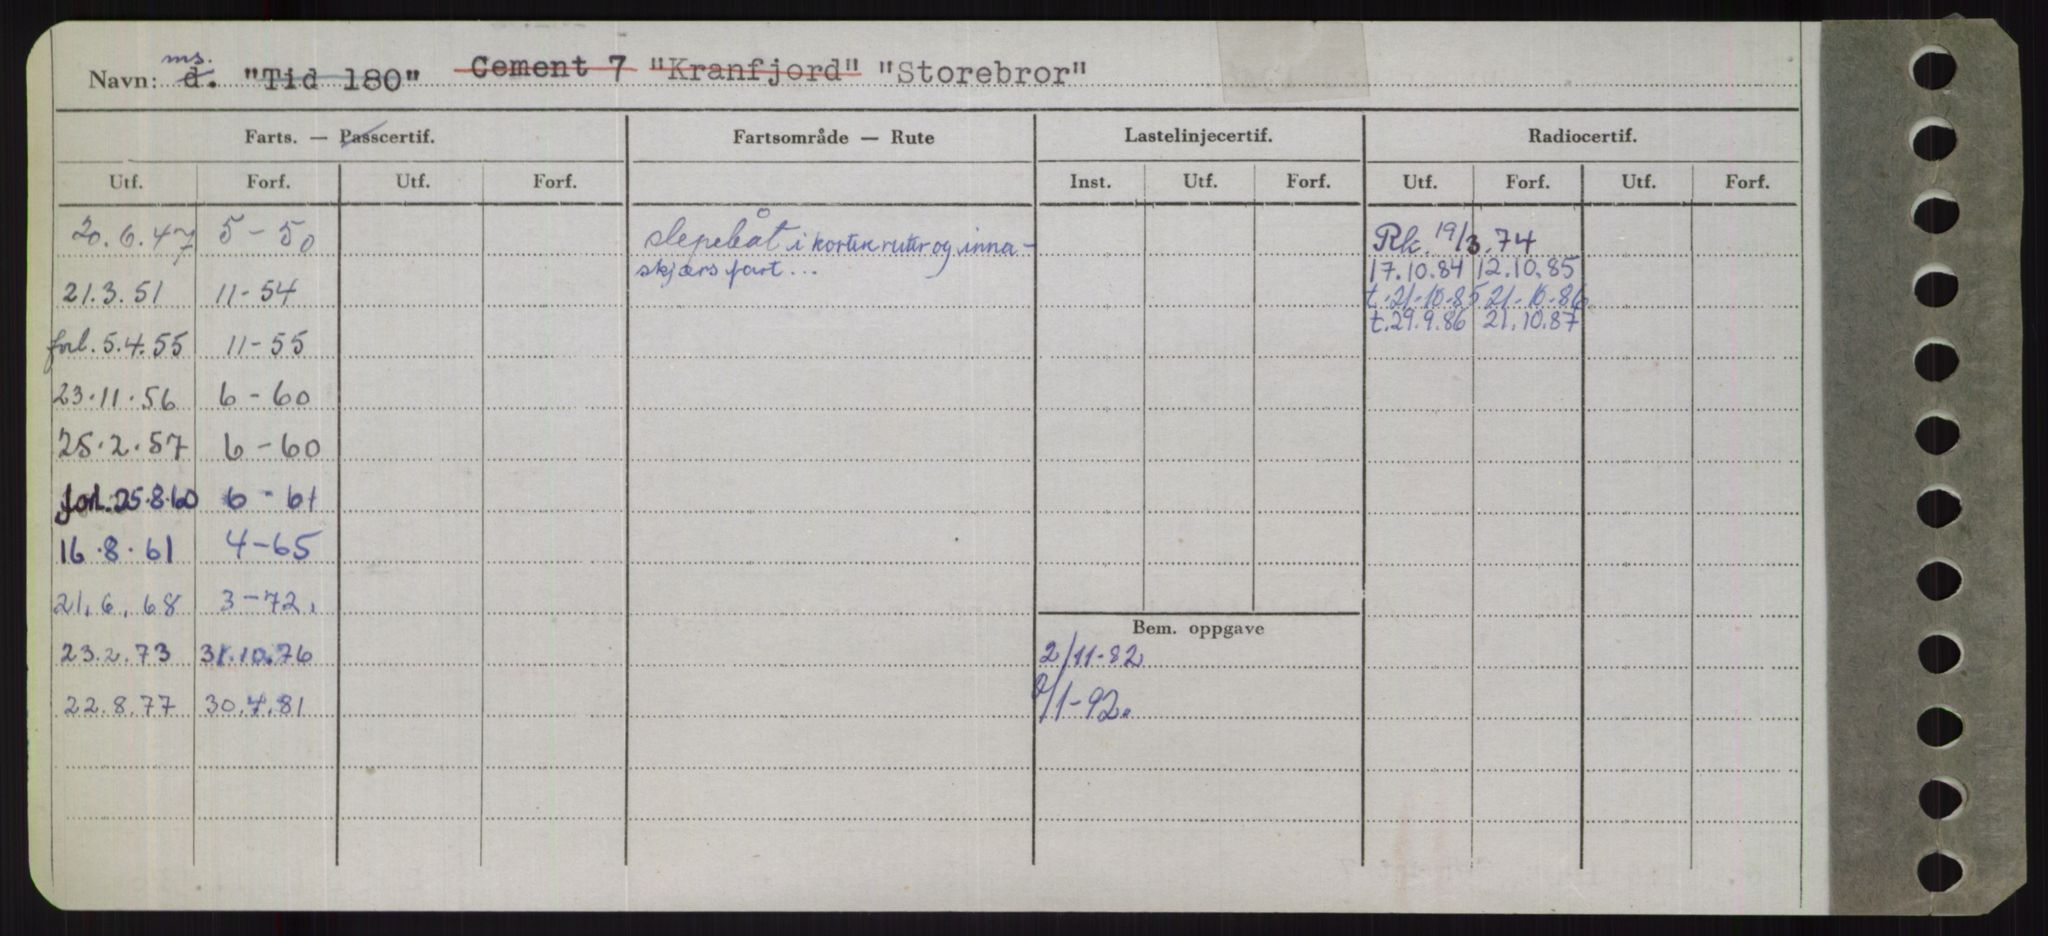 Navn: ms. d. "Tid 180" Cement 7 "Kranfjord" "Storebror"
Farts. — Passcertif. Fartsområde — Rute Lastelinjecertif. Radiocertif.
Utf. Forf. Utf. Forf. Inst. Utf. Forf. Utf. Forf. Utf. Forf.
20.6.47 5-50 slepebåt i korte ruter og inna- Rk. 19/3.74
skjærs fart... 17.10.84 12.10.85
21.3.51 11-54 t.21-10-85 21-10-86
forl. 5.4.55 11-55 t.29.9.86 21.10.87
23.11.56 6-60
25.2.57 6-60
forl. 25.8.60 6-61
16.8.61 4-65
21.6.68 3-72.
Bem. oppgave
23.2.73 31.10.76 2/11-82
22.8.77 30.4.81 2/1-92.